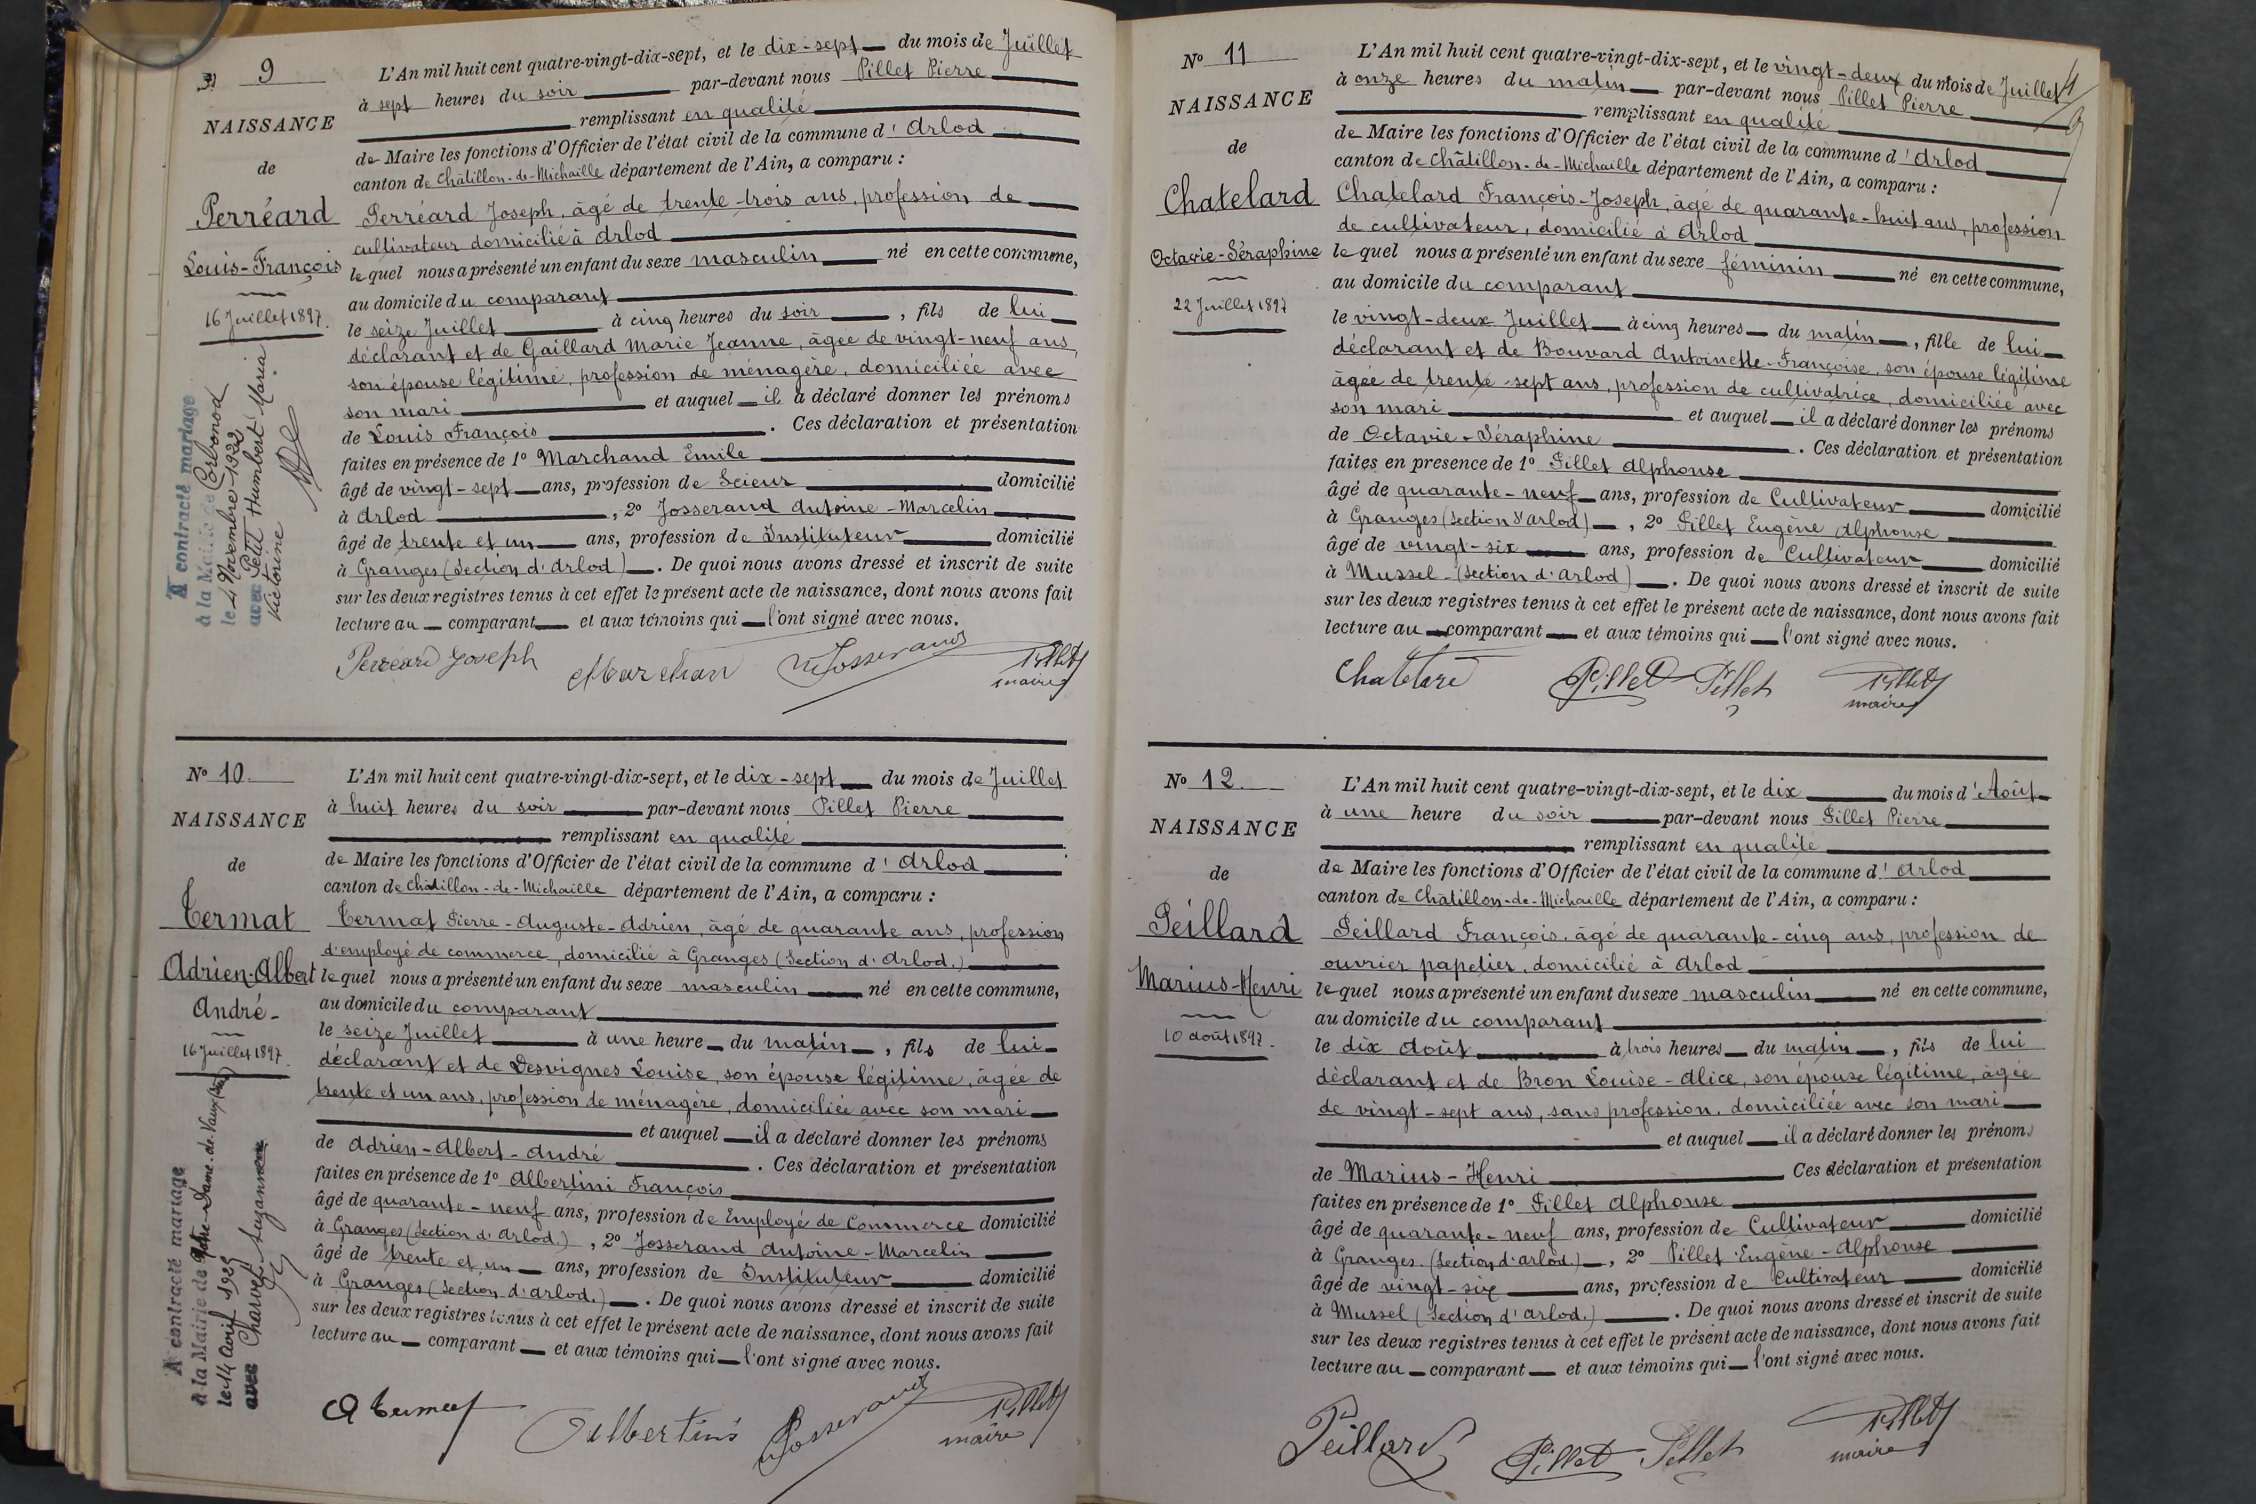 9
NAISSANCE
de
Perréard
Louis-François
16 Juillet 1897
A contracté mariage
à la Mairie de Corbonod
le 4 Novembre 1922
avec Petit Humbert Maria
Victorine
L'An mil huit cent quatre-vingt-dix-sept, et le dix-sept du mois de Juillet
à sept heures du soir par-devant nous Pillet Pierre
remplissant en qualité
de Maire les fonctions d'Officier de l'état civil de la commune d'Arlod
canton de Châtillon-de-Michaille département de l'Ain, a comparu :
Perréard Joseph, âgé de trente-trois ans, profession de
cultivateur domicilié à Arlod
lequel nous a présenté un enfant du sexe masculin né en cette commune,
au domicile du comparant
le seize Juillet à cinq heures du soir, fils de lui
déclarant et de Gaillard Marie Jeanne, âgée de vingt-neuf ans,
son épouse légitime, profession de ménagère, domiciliée avec
son mari et auquel il a déclaré donner les prénoms
de Louis François. Ces déclaration et présentation
faites en présence de 1º Marchand Emile
âgé de vingt-sept ans, profession de Scieur domicilié
à Arlod, 2º Josserand Antoine-Marcelin
âgé de trente et un ans, profession de Instituteur domicilié
à Granges (Section d'Arlod). De quoi nous avons dressé et inscrit de suite
sur les deux registres tenus à cet effet le présent acte de naissance, dont nous avons fait
lecture au comparant et aux témoins qui l'ont signé avec nous.
Perréard Joseph Marchan Josserand Pillet
maire
Nº 10
NAISSANCE
de
Termat
Adrien-Albert
André-
16 Juillet 1897
A contracté mariage
à la Mairie de Notre-Dame-de-Vaux
le 14 Avril 1925
avec Charvet Suzanne
L'An mil huit cent quatre-vingt-dix-sept, et le dix-sept du mois de Juillet
à huit heures du soir par-devant nous Pillet Pierre
remplissant en qualité
de Maire les fonctions d'Officier de l'état civil de la commune d'Arlod
canton de Châtillon-de-Michaille département de l'Ain, a comparu :
Termat Pierre-Auguste-Adrien, âgé de quarante ans, profession
d'employé de commerce, domicilié à Granges (Section d'Arlod.)
lequel nous a présenté un enfant du sexe masculin né en cette commune,
au domicile du comparant
le seize Juillet à une heure du matin, fils de lui
déclarant et de Desvignes Louise, son épouse légitime, âgée de
trente et un ans, profession de ménagère, domiciliée avec son mari
et auquel il a déclaré donner les prénoms
de Adrien-Albert-André. Ces déclaration et présentation
faites en présence de 1º Albertini François
âgé de quarante-neuf ans, profession de Employé de Commerce domicilié
à Granges (Section d'Arlod.), 2º Josserand Antoine-Marcelin
âgé de trente et un ans, profession de Instituteur domicilié
à Granges (Section d'Arlod.). De quoi nous avons dressé et inscrit de suite
sur les deux registres tenus à cet effet le présent acte de naissance, dont nous avons fait
lecture au comparant et aux témoins qui l'ont signé avec nous.
A Termat Albertini Josserand Pillet
maire
Nº 11
NAISSANCE
de
Chatelard
Octavie-Séraphine
22 Juillet 1897
L'An mil huit cent quatre-vingt-dix-sept, et le vingt-deux du mois de Juillet
à onze heures du matin par-devant nous Pillet Pierre
remplissant en qualité
de Maire les fonctions d'Officier de l'état civil de la commune d'Arlod
canton de Châtillon-de-Michaille département de l'Ain, a comparu :
Chatelard François-Joseph, âgé de quarante-huit ans, profession
de cultivateur, domicilié à Arlod
lequel nous a présenté un enfant du sexe féminin né en cette commune,
au domicile du comparant
le vingt-deux Juillet à cinq heures du matin, fille de lui
déclarant et de Bouvard Antoinette-Françoise, son épouse légitime
âgée de trente-sept ans, profession de cultivatrice, domiciliée avec
son mari et auquel il a déclaré donner les prénoms
de Octavie-Séraphine. Ces déclaration et présentation
faites en présence de 1º Pillet Alphonse
âgé de quarante-neuf ans, profession de Cultivateur domicilié
à Granges (Section d'Arlod), 2º Pillet Eugène Alphonse
âgé de vingt-six ans, profession de Cultivateur domicilié
à Mussel (Section d'Arlod). De quoi nous avons dressé et inscrit de suite
sur les deux registres tenus à cet effet le présent acte de naissance, dont nous avons fait
lecture au comparant et aux témoins qui l'ont signé avec nous.
Chatelard Pillet Pillet Pillet
maire
Nº 12
NAISSANCE
de
Peillard
Marius-Henri
10 Août 1897.
L'An mil huit cent quatre-vingt-dix-sept, et le dix du mois d'Août
à une heure du soir par-devant nous Pillet Pierre
remplissant en qualité
de Maire les fonctions d'Officier de l'état civil de la commune d'Arlod
canton de Châtillon-de-Michaille département de l'Ain, a comparu :
Peillard François, âgé de quarante-cinq ans, profession de
ouvrier papetier, domicilié à Arlod
lequel nous a présenté un enfant du sexe masculin né en cette commune,
au domicile du comparant
le dix Août à trois heures du matin, fils de lui
déclarant et de Bron Louise-Alice, son épouse légitime, âgée
de vingt-sept ans, sans profession, domiciliée avec son mari
et auquel il a déclaré donner les prénoms
de Marius-Henri Ces déclaration et présentation
faites en présence de 1º Pillet Alphonse
âgé de quarante-neuf ans, profession de Cultivateur domicilié
à Granges. (Section d'Arlod.), 2º Pillet Eugène-Alphonse
âgé de vingt-six ans, profession de Cultivateur domicilié
à Mussel (Section d'Arlod.). De quoi nous avons dressé et inscrit de suite
sur les deux registres tenus à cet effet le présent acte de naissance, dont nous avons fait
lecture au comparant et aux témoins qui l'ont signé avec nous.
Peillard Pillet Pillet Pillet
maire